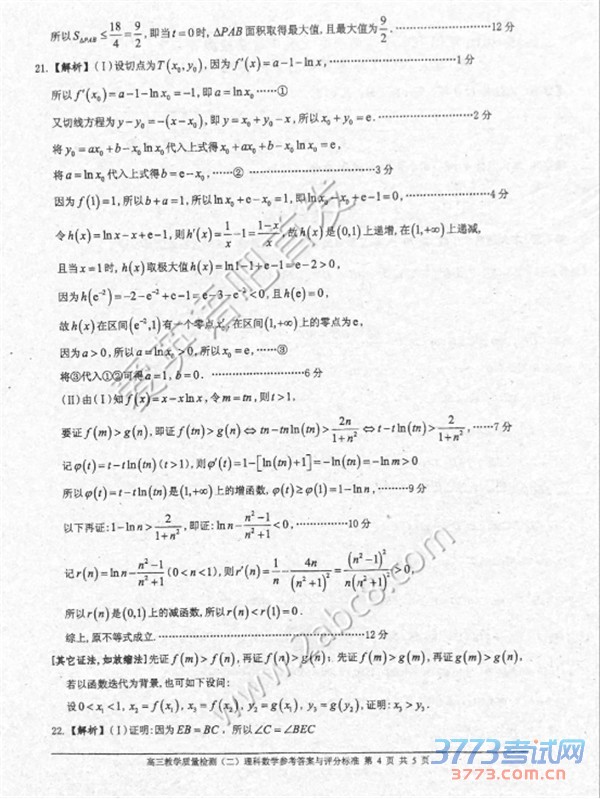 所以 S△PAB ≤ 18/4 = 9/2, 即当 t = 0 时, △PAB 面积取得最大值, 且最大值为 9/2. ……………………12 分
21.【解析】(Ⅰ) 设切点为 T(x₀, y₀), 因为 f′(x) = a − 1 − ln x, ……………………1 分
所以 f′(x₀) = a − 1 − ln x₀ = −1, 即 a = ln x₀ ……①
又切线方程为 y − y₀ = −(x − x₀), 即 y = x₀ + y₀ − x, 所以 x₀ + y₀ = e. ……………………2 分
将 y₀ = ax₀ + b − x₀ ln x₀ 代入上式得 x₀ + ax₀ + b − x₀ ln x₀ = e,
将 a = ln x₀ 代入上式得 b = e − x₀, ……② ……………………3 分
因为 f(1) = 1, 所以 b + a = 1, 所以 ln x₀ + e − x₀ = 1, 即 ln x₀ − x₀ + e − 1 = 0, ……………………4 分
令 h(x) = ln x − x + e − 1, 则 h′(x) = 1/x − 1 = (1−x)/x, 故 h(x) 是 (0,1) 上递增, 在 (1,+∞) 上递减,
且当 x = 1 时, h(x) 取极大值 h(x) = ln1 − 1 + e − 1 = e − 2 > 0,
因为 h(e⁻²) = −2 − e⁻² + e − 1 = e − 3 − e⁻² < 0, 且 h(e) = 0,
故 h(x) 在区间 (e⁻²,1) 有一个零点 x′, 在区间 (1,+∞) 上的零点为 e,
因为 a > 0, 所以 a = ln x₀ > 0, 所以 x₀ = e, ……③
将③代入①②可得 a = 1, b = 0. ……………………6 分
(Ⅱ) 由(Ⅰ)知 f(x) = x − x ln x, 令 m = tn, 则 t > 1,
要证 f(m) > g(n), 即证 f(tn) > g(n) ⇔ tn − tn ln(tn) > 2n/(1+n²) ⇔ t − t ln(tn) > 2/(1+n²), ……7 分
记 φ(t) = t − t ln(tn) (t > 1), 则 φ′(t) = 1 − [ln(tn) + 1] = −ln(tn) = −ln m > 0
所以 φ(t) = t − t ln(tn) 是 (1,+∞) 上的增函数, φ(t) ≥ φ(1) = 1 − ln n, ………9 分
以下再证: 1 − ln n > 2/(1+n²), 即证: ln n − (n²−1)/(n²+1) < 0, ……………10 分
记 r(n) = ln n − (n²−1)/(n²+1) (0 < n < 1), 则 r′(n) = 1/n − 4n/(n²+1)² = (n²−1)²/(n(n²+1)²) > 0,
所以 r(n) 是 (0,1) 上的减函数, 所以 r(n) < r(1) = 0.
综上, 原不等式成立. ……………………12 分
[其它证法, 如放缩法] 先证 f(m) > f(n), 再证 f(n) > g(n); 先证 f(m) > g(m), 再证 g(m) > g(n),
若以函数迭代为背景, 也可如下设问:
设 0 < x₁ < 1, x₂ = f(x₁), x₃ = f(x₂), y₂ = g(x₁), y₃ = g(y₂), 证明: x₃ > y₃.
22.【解析】(Ⅰ) 证明: 因为 EB = BC, 所以 ∠C = ∠BEC
高三教学质量检测（二）理科数学参考答案与评分标准 第 4 页 共 5 页
爱英语吧首发
www.2abc8.com
3773考试网
3773.com.cn